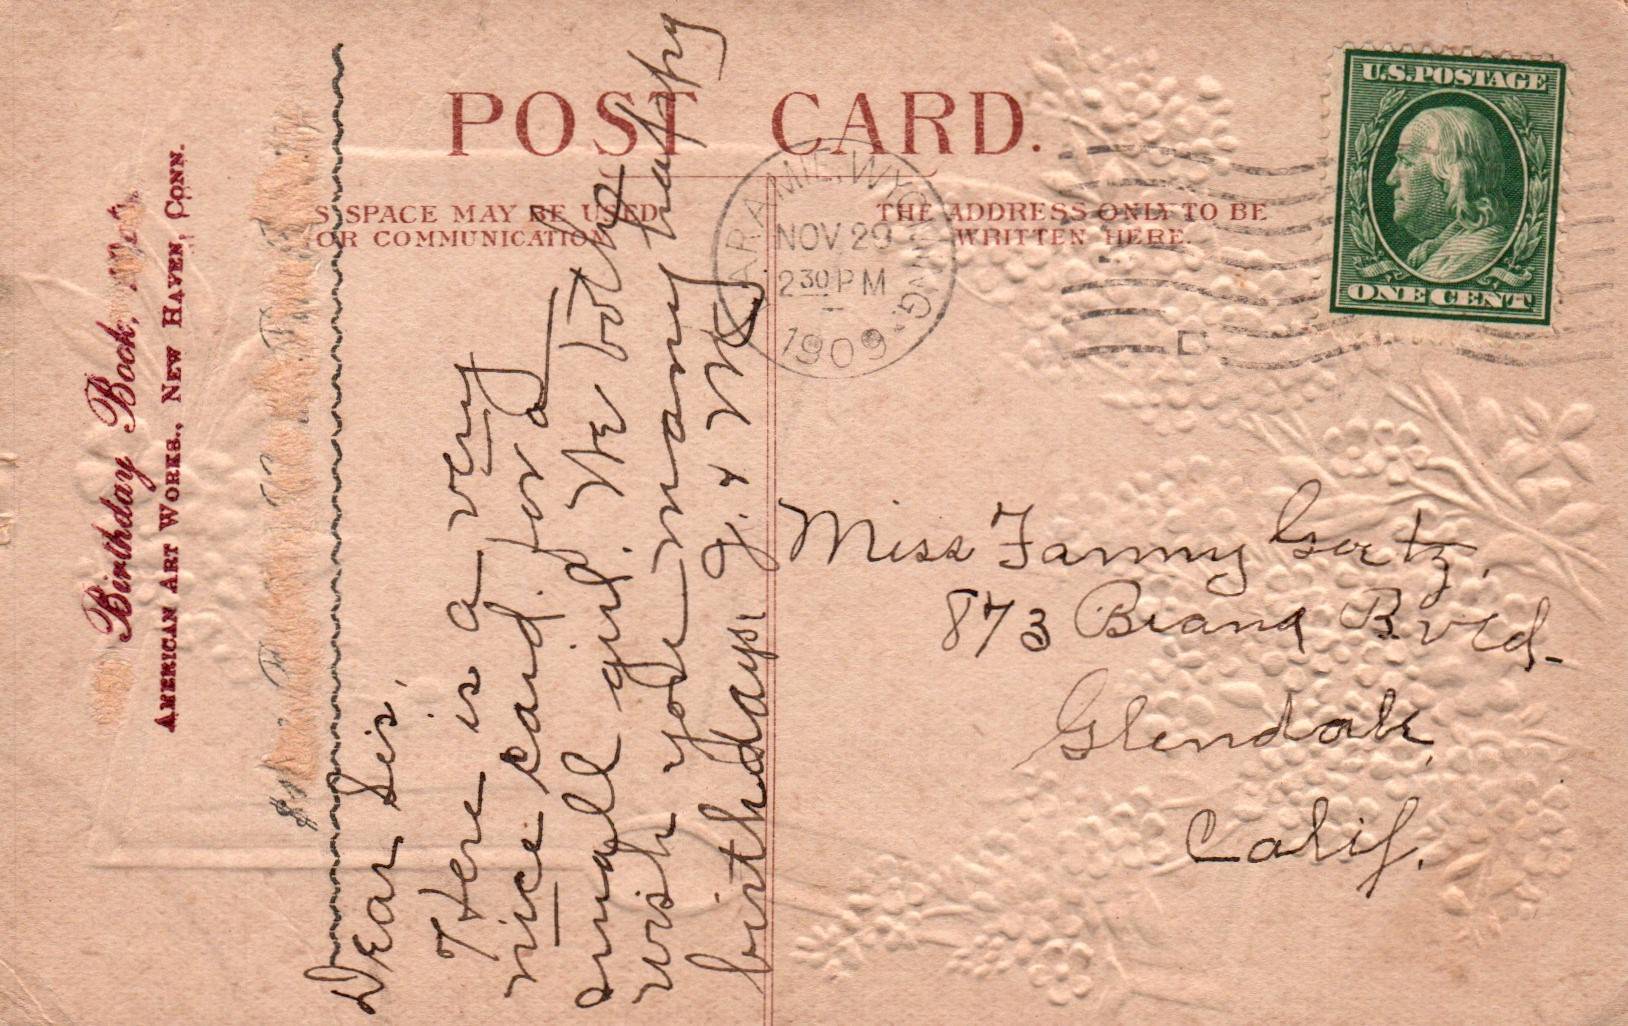 POST CARD.
S SPACE MAY BE USED
OR COMMUNICATION
THE ADDRESS ONLY TO BE
WRITTEN HERE.
U.S. POSTAGE
ONE CENT
LARAMIE, WYOMING.
NOV 29
2 30 PM
1909
D
Birthday Book,
AMERICAN ART WORKS., NEW HAVEN, CONN.
Dear Sis,
Here is a very
nice card for a
small girl. We both
wish you many happy
birthdays. J. &
Miss Fanny Goetz,
873 Brand Bvld.
Glendale,
Calif.